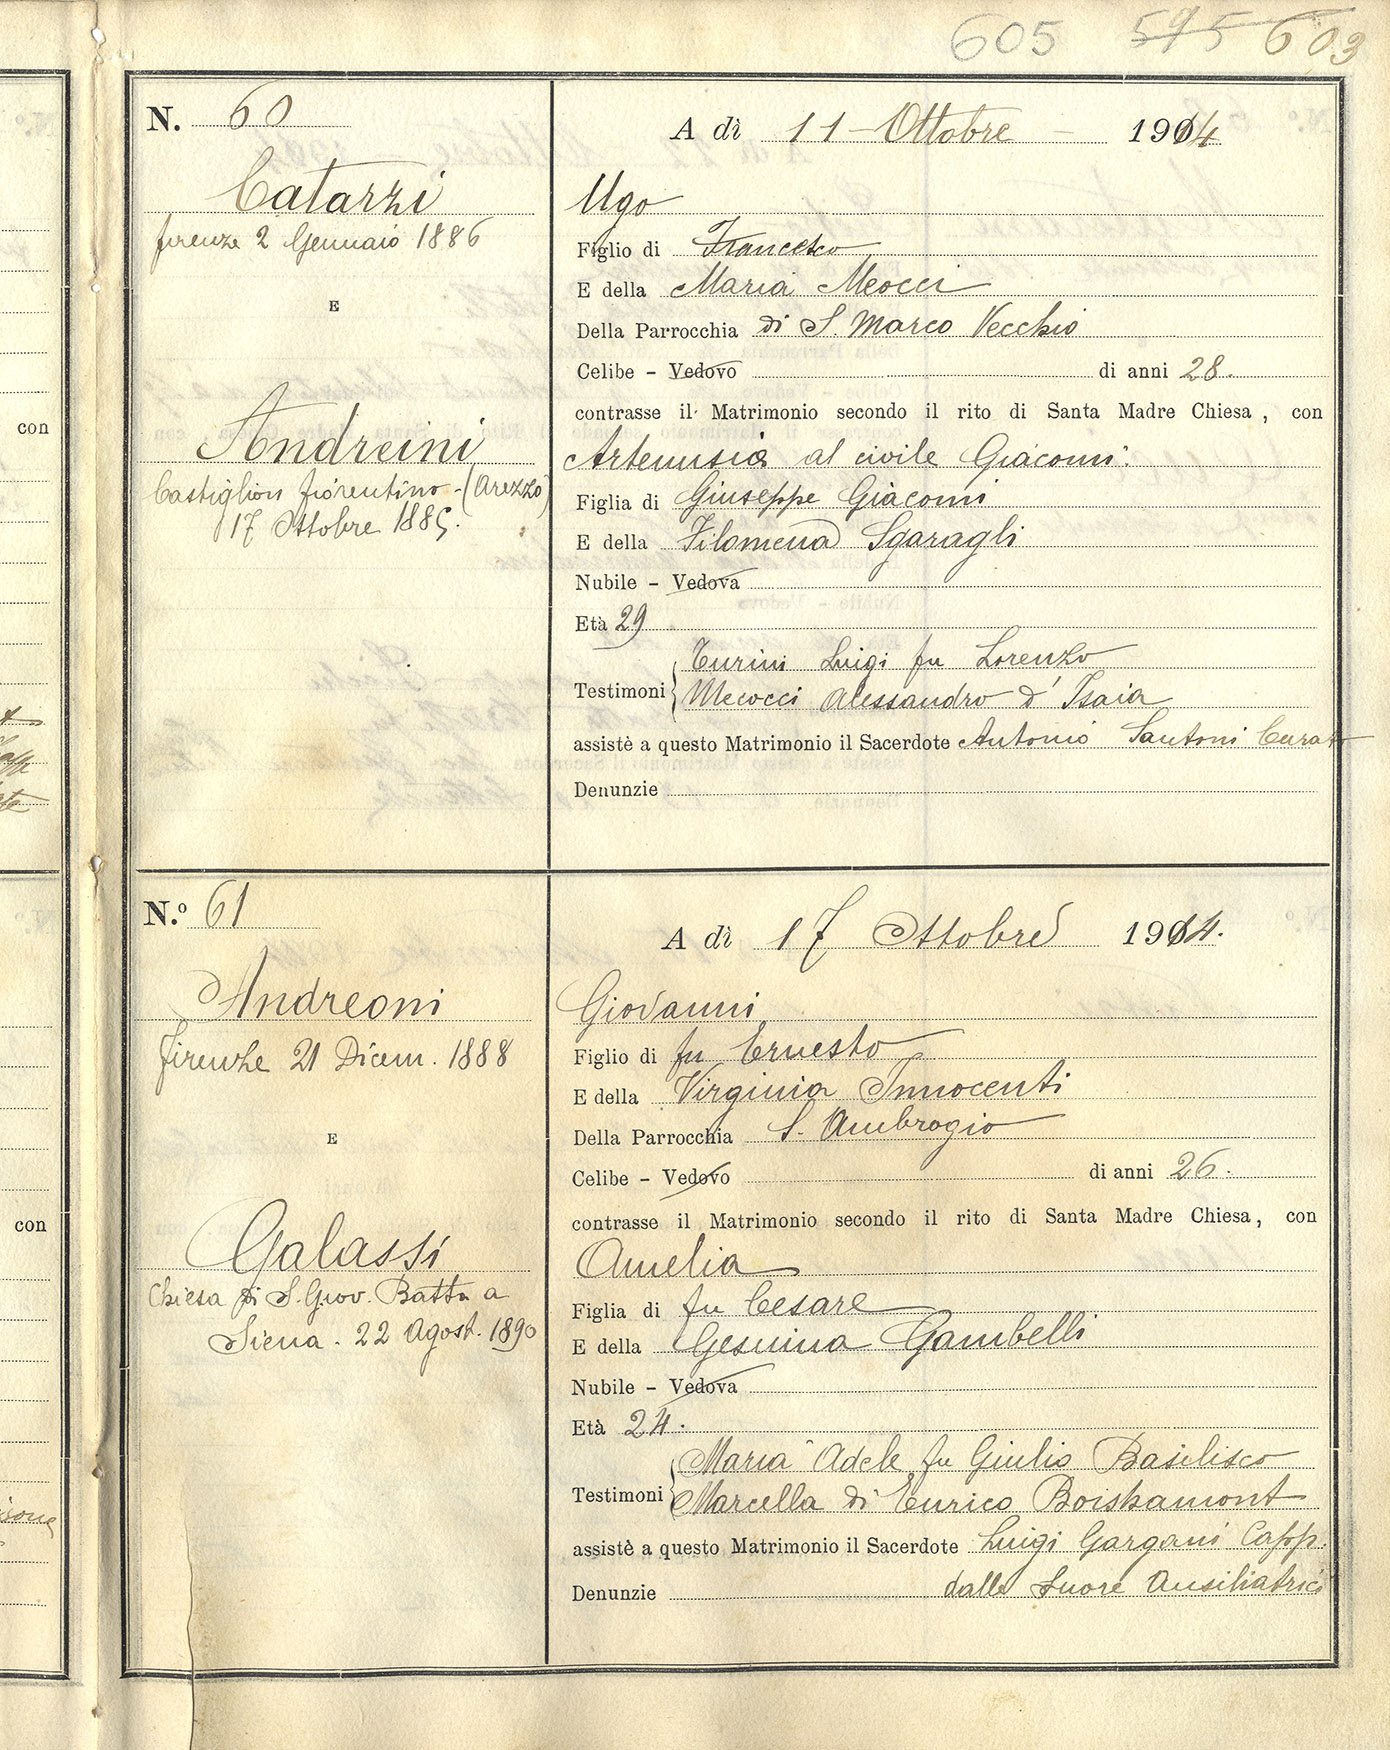 605 595 603
N. 60
Catarzi
firenze 2 Gennaio 1886
E
Andreini
Castiglion fiorentino - (Arezzo)
17 Ottobre 1885.
A dì 11 - Ottobre - 1914
Ugo
Figlio di Francesco
E della Maria Meocci
Della Parrocchia di S. Marco Vecchio
Celibe - Vedovo di anni 28.
contrasse il Matrimonio secondo il rito di Santa Madre Chiesa, con
Artemisia al civile Giacomi.
Figlia di Giuseppe Giacomi
E della Filomena Sgaragli
Nubile - Vedova
Età 29
Testimoni Turini Luigi fu Lorenzo
Mecocci Alessandro d'Isaia
assistè a questo Matrimonio il Sacerdote Antonio Santoni Curato
Denunzie
N.º 61
Andreoni
firenze 21 Dicem. 1888
E
Galassi
Chiesa di S. Giov. Batta a
Siena. 22 Agost. 1890
A dì 17 Ottobre 1914.
Giovanni
Figlio di fu Ernesto
E della Virginia Innocenti
Della Parrocchia S. Ambrogio
Celibe - Vedovo di anni 26.
contrasse il Matrimonio secondo il rito di Santa Madre Chiesa, con
Amelia
Figlia di fu Cesare
E della Gesuina Gambelli
Nubile - Vedova
Età 24.
Testimoni Maria Adele fu Giulio Basilisco
Marcella di Enrico
assistè a questo Matrimonio il Sacerdote Luigi Gargani Capp.
Denunzie dalle Suore Ausiliatrici
con
con